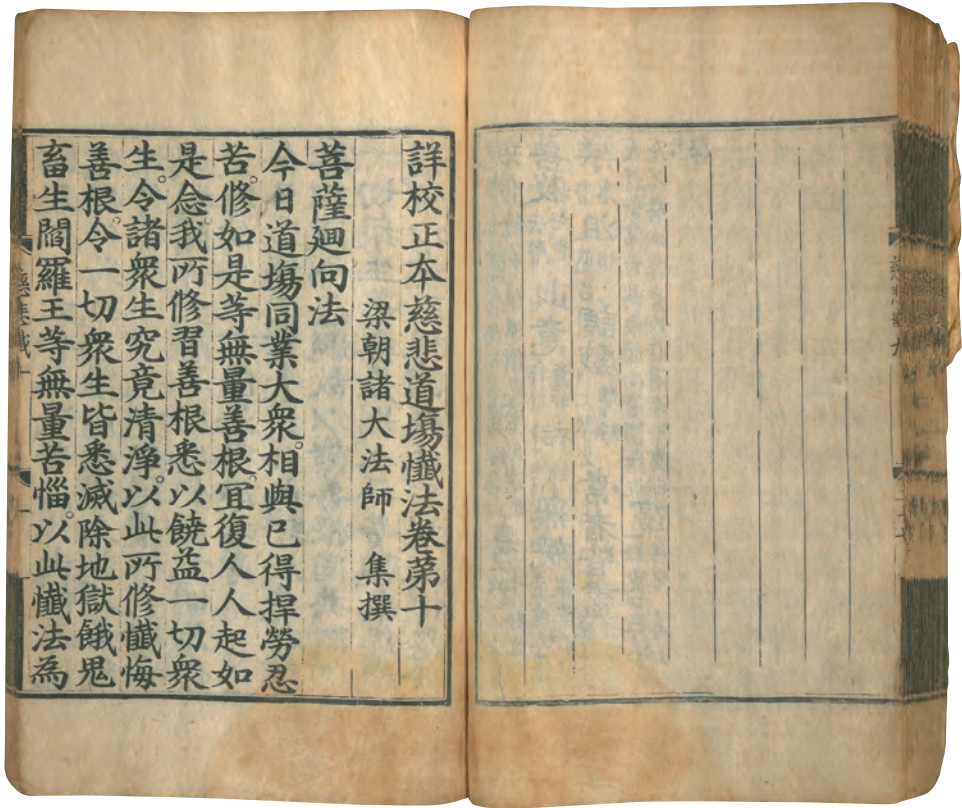 詳校正本慈悲道塲懺法卷第十
梁朝諸大法師 集撰
菩薩廻向法
今日道塲同業大衆。相與已得捍勞忍
苦。修如是等無量善根。冝復人人起如
是念。我所修習善根悉以饒益一切衆
生。令諸衆生究竟清淨。以此所修懺悔
善根。令一切衆生皆悉滅除地獄餓鬼
畜生閻羅王等無量苦惱。以此懺法為
慈悲懺十
一